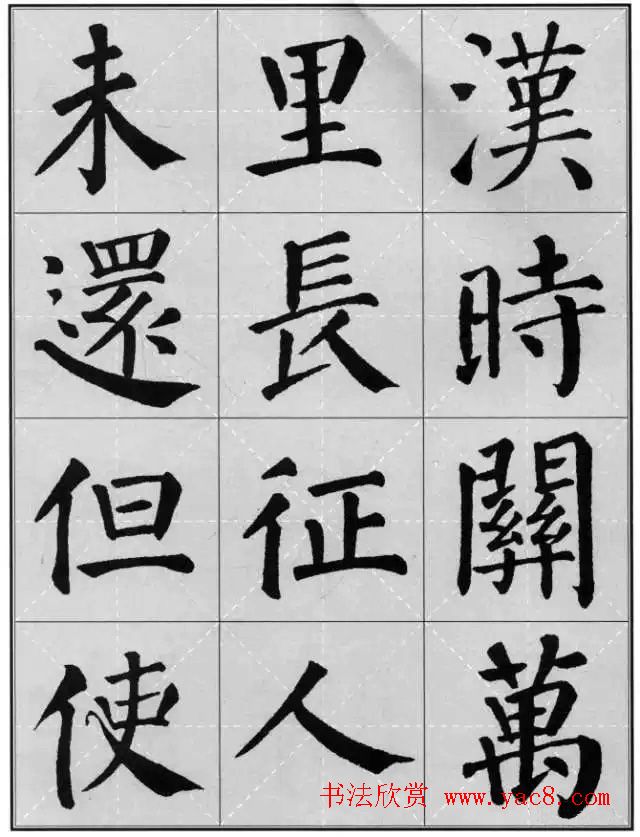 漢時關萬
里長征人
未還但使
书法欣赏 www.yac8.com